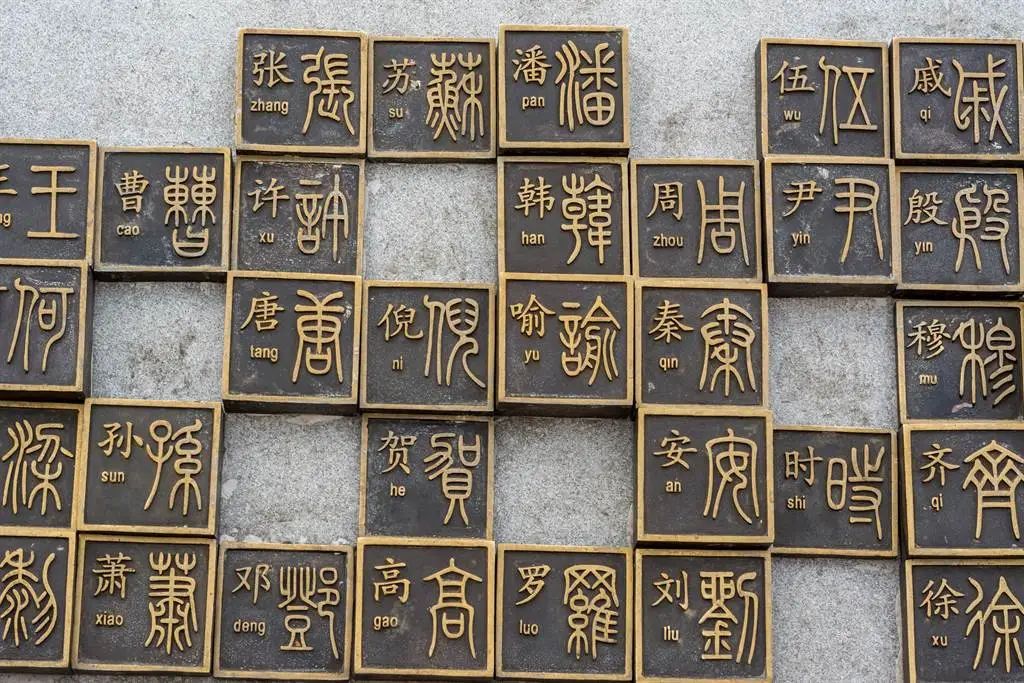 张 張
zhang
苏 蘇
su
潘 潘
pan
伍 伍
wu
戚 戚
qi
王
曹 曹
cao
许 許
xu
韩 韓
han
周 周
zhou
尹 尹
yin
殷 殷
yin
何
唐 唐
tang
倪 倪
ni
喻 喻
yu
秦 秦
qin
穆 穆
mu
梁
孙 孫
sun
贺 賀
he
安 安
an
时 時
shi
齐 齊
qi
黎
萧 蕭
xiao
邓 鄧
deng
高 高
gao
罗 羅
luo
刘 劉
liu
徐 徐
xu